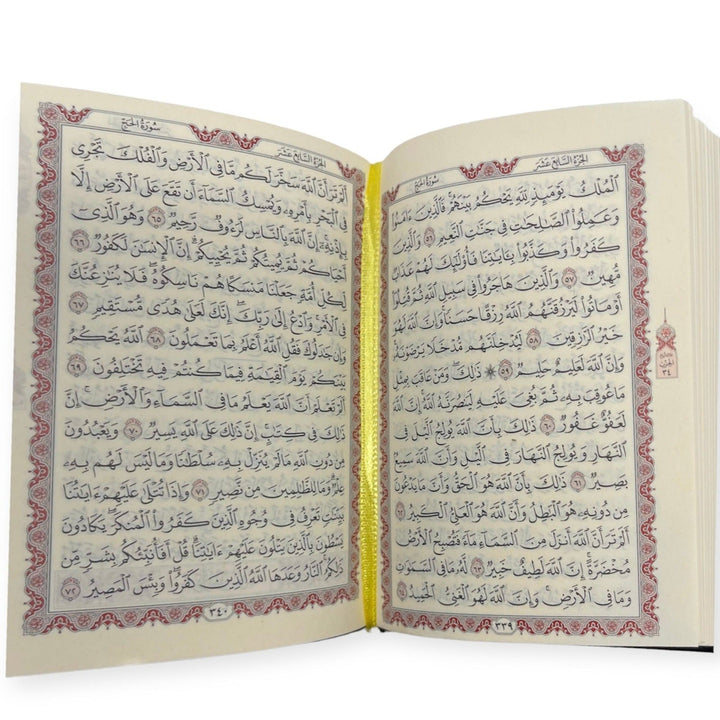 سُورَةُ الحَجّ
الجُزءُ السَّابِعَ عَشَرَ
ٱلْمُلْكُ يَوْمَئِذٍ لِّلَّهِ يَحْكُمُ بَيْنَهُمْ ۚ فَٱلَّذِينَ ءَامَنُوا۟
وَعَمِلُوا۟ ٱلصَّٰلِحَٰتِ فِى جَنَّٰتِ ٱلنَّعِيمِ ٥٦ وَٱلَّذِينَ
كَفَرُوا۟ وَكَذَّبُوا۟ بِـَٔايَٰتِنَا فَأُو۟لَٰٓئِكَ لَهُمْ عَذَابٌ
مُّهِينٌ ٥٧ وَٱلَّذِينَ هَاجَرُوا۟ فِى سَبِيلِ ٱللَّهِ ثُمَّ قُتِلُوٓا۟
أَوْ مَاتُوا۟ لَيَرْزُقَنَّهُمُ ٱللَّهُ رِزْقًا حَسَنًا ۚ وَإِنَّ ٱللَّهَ لَهُوَ
خَيْرُ ٱلرَّٰزِقِينَ ٥٨ لَيُدْخِلَنَّهُم مُّدْخَلًا يَرْضَوْنَهُۥ ۗ
وَإِنَّ ٱللَّهَ لَعَلِيمٌ حَلِيمٌ ٥٩ ۞ ذَٰلِكَ وَمَنْ عَاقَبَ بِمِثْلِ
مَا عُوقِبَ بِهِۦ ثُمَّ بُغِىَ عَلَيْهِ لَيَنصُرَنَّهُ ٱللَّهُ ۗ إِنَّ ٱللَّهَ
لَعَفُوٌّ غَفُورٌ ٦٠ ذَٰلِكَ بِأَنَّ ٱللَّهَ يُولِجُ ٱلَّيْلَ فِى
ٱلنَّهَارِ وَيُولِجُ ٱلنَّهَارَ فِى ٱلَّيْلِ وَأَنَّ ٱللَّهَ سَمِيعٌۢ
بَصِيرٌ ٦١ ذَٰلِكَ بِأَنَّ ٱللَّهَ هُوَ ٱلْحَقُّ وَأَنَّ مَا يَدْعُونَ
مِن دُونِهِۦ هُوَ ٱلْبَٰطِلُ وَأَنَّ ٱللَّهَ هُوَ ٱلْعَلِىُّ ٱلْكَبِيرُ ٦٢
أَلَمْ تَرَ أَنَّ ٱللَّهَ أَنزَلَ مِنَ ٱلسَّمَآءِ مَآءً فَتُصْبِحُ ٱلْأَرْضُ
مُخْضَرَّةً ۗ إِنَّ ٱللَّهَ لَطِيفٌ خَبِيرٌ ٦٣ لَّهُۥ مَا فِى ٱلسَّمَٰوَٰتِ
وَمَا فِى ٱلْأَرْضِ ۗ وَإِنَّ ٱللَّهَ لَهُوَ ٱلْغَنِىُّ ٱلْحَمِيدُ ٦٤
٣٣٩
٣٤
الجُزءُ السَّابِعَ عَشَرَ
سُورَةُ الحَجّ
أَلَمْ تَرَ أَنَّ ٱللَّهَ سَخَّرَ لَكُم مَّا فِى ٱلْأَرْضِ وَٱلْفُلْكَ تَجْرِى
فِى ٱلْبَحْرِ بِأَمْرِهِۦ وَيُمْسِكُ ٱلسَّمَآءَ أَن تَقَعَ عَلَى ٱلْأَرْضِ إِلَّا
بِإِذْنِهِۦٓ ۗ إِنَّ ٱللَّهَ بِٱلنَّاسِ لَرَءُوفٌ رَّحِيمٌ ٦٥ وَهُوَ ٱلَّذِىٓ
أَحْيَاكُمْ ثُمَّ يُمِيتُكُمْ ثُمَّ يُحْيِيكُمْ ۗ إِنَّ ٱلْإِنسَٰنَ لَكَفُورٌ ٦٦
لِّكُلِّ أُمَّةٍ جَعَلْنَا مَنسَكًا هُمْ نَاسِكُوهُ ۖ فَلَا يُنَٰزِعُنَّكَ
فِى ٱلْأَمْرِ ۚ وَٱدْعُ إِلَىٰ رَبِّكَ ۖ إِنَّكَ لَعَلَىٰ هُدًى مُّسْتَقِيمٍ ٦٧
وَإِن جَٰدَلُوكَ فَقُلِ ٱللَّهُ أَعْلَمُ بِمَا تَعْمَلُونَ ٦٨ ٱللَّهُ يَحْكُمُ
بَيْنَكُمْ يَوْمَ ٱلْقِيَٰمَةِ فِيمَا كُنتُمْ فِيهِ تَخْتَلِفُونَ ٦٩
أَلَمْ تَعْلَمْ أَنَّ ٱللَّهَ يَعْلَمُ مَا فِى ٱلسَّمَآءِ وَٱلْأَرْضِ ۗ إِنَّ
ذَٰلِكَ فِى كِتَٰبٍ ۚ إِنَّ ذَٰلِكَ عَلَى ٱللَّهِ يَسِيرٌ ٧٠ وَيَعْبُدُونَ
مِن دُونِ ٱللَّهِ مَا لَمْ يُنَزِّلْ بِهِۦ سُلْطَٰنًا وَمَا لَيْسَ لَهُم بِهِۦ
عِلْمٌ ۗ وَمَا لِلظَّٰلِمِينَ مِن نَّصِيرٍ ٧١ وَإِذَا تُتْلَىٰ عَلَيْهِمْ ءَايَٰتُنَا
بَيِّنَٰتٍ تَعْرِفُ فِى وُجُوهِ ٱلَّذِينَ كَفَرُوا۟ ٱلْمُنكَرَ ۖ يَكَادُونَ
يَسْطُونَ بِٱلَّذِينَ يَتْلُونَ عَلَيْهِمْ ءَايَٰتِنَا ۗ قُلْ أَفَأُنَبِّئُكُم بِشَرٍّ مِّن
ذَٰلِكُمُ ۗ ٱلنَّارُ وَعَدَهَا ٱللَّهُ ٱلَّذِينَ كَفَرُوا۟ ۖ وَبِئْسَ ٱلْمَصِيرُ ٧٢
٣٤٠